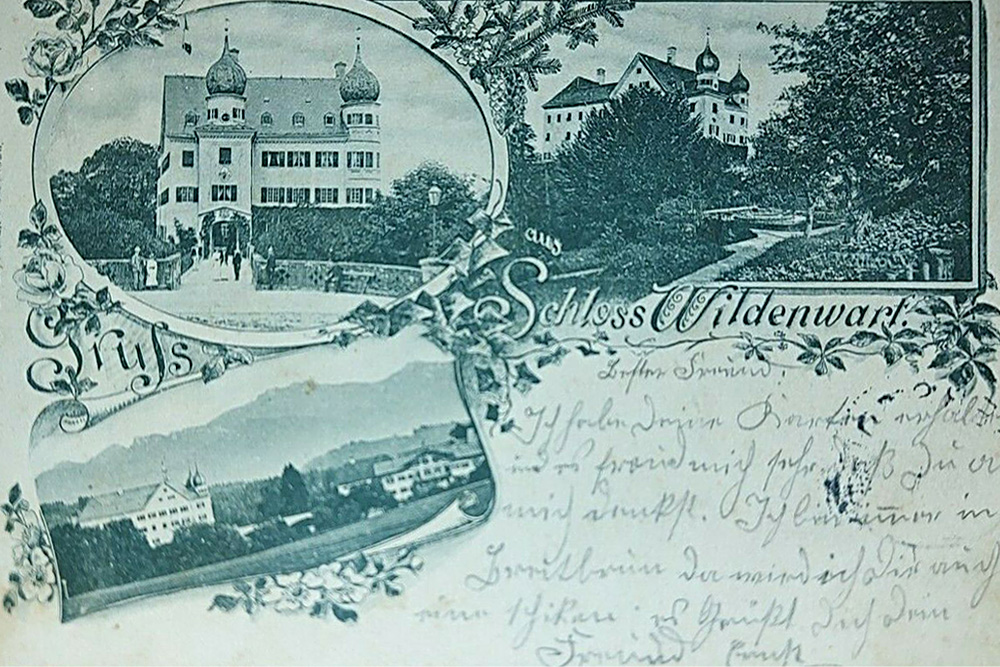 Gruss
aus
Schloss Wildenwart.
Bester Freund!
Ich habe Deine Karten erhal
und es freud mich sehr, daß Du a
mich denkst. Ich bin immer in
Breitbrun da wird ich Dir auch
eine schiken es Grüßt Dich dein
Freund